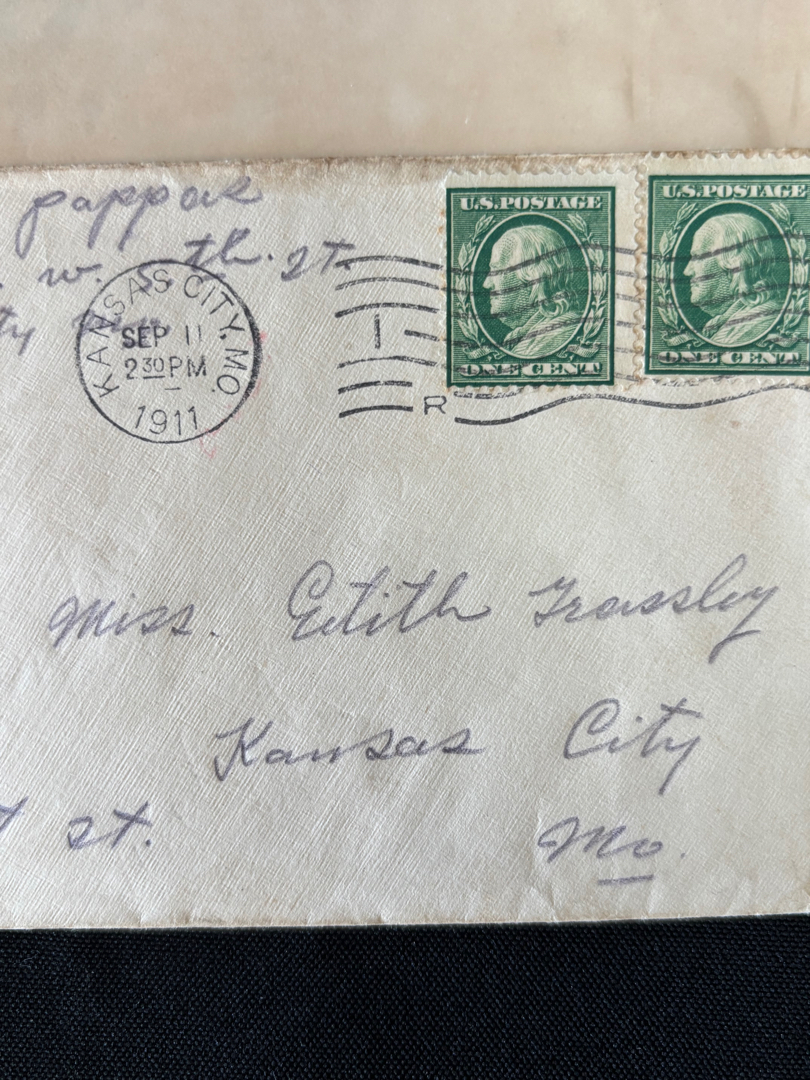 pappas
w. 5 th. st.
KANSAS CITY, MO.
SEP 11
2 30 PM
1911
1
R
U.S. POSTAGE
ONE CENT
U.S. POSTAGE
ONE CENT
Miss. Edith Grassley
Kansas City
st.
Mo.